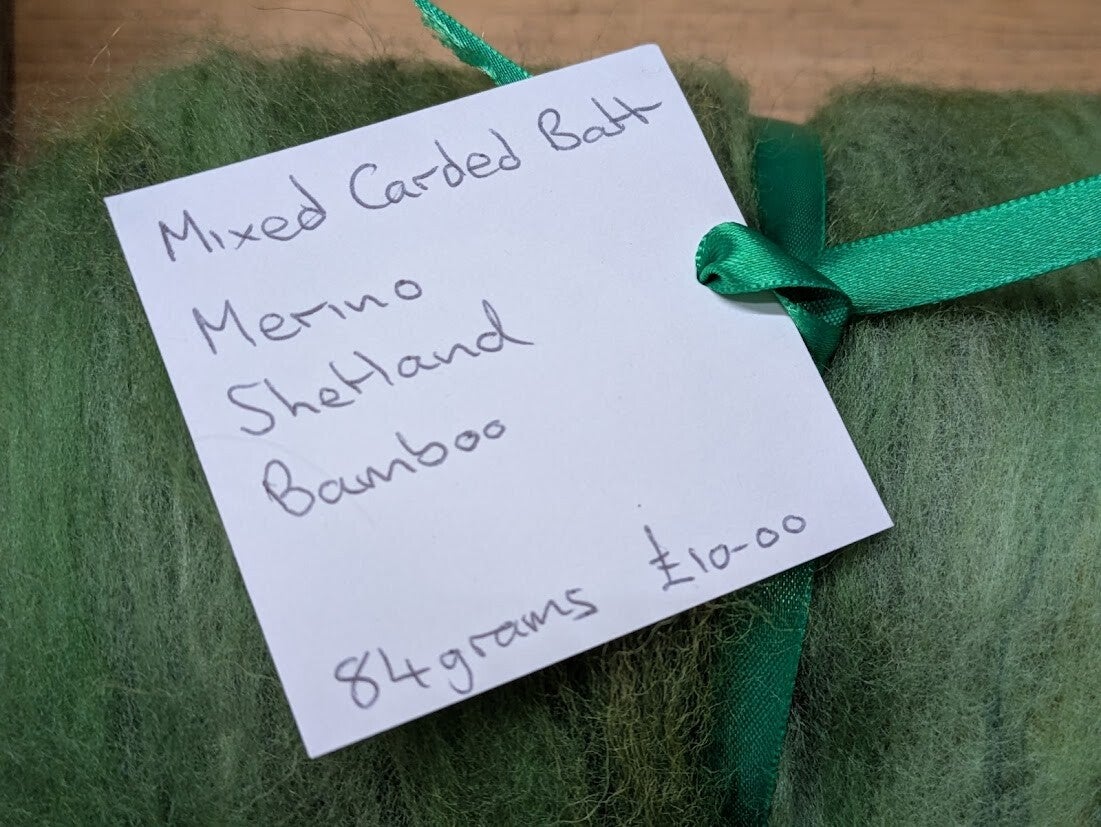 Mixed Carded Batt
Merino
Shetland
Bamboo
84grams £10-00